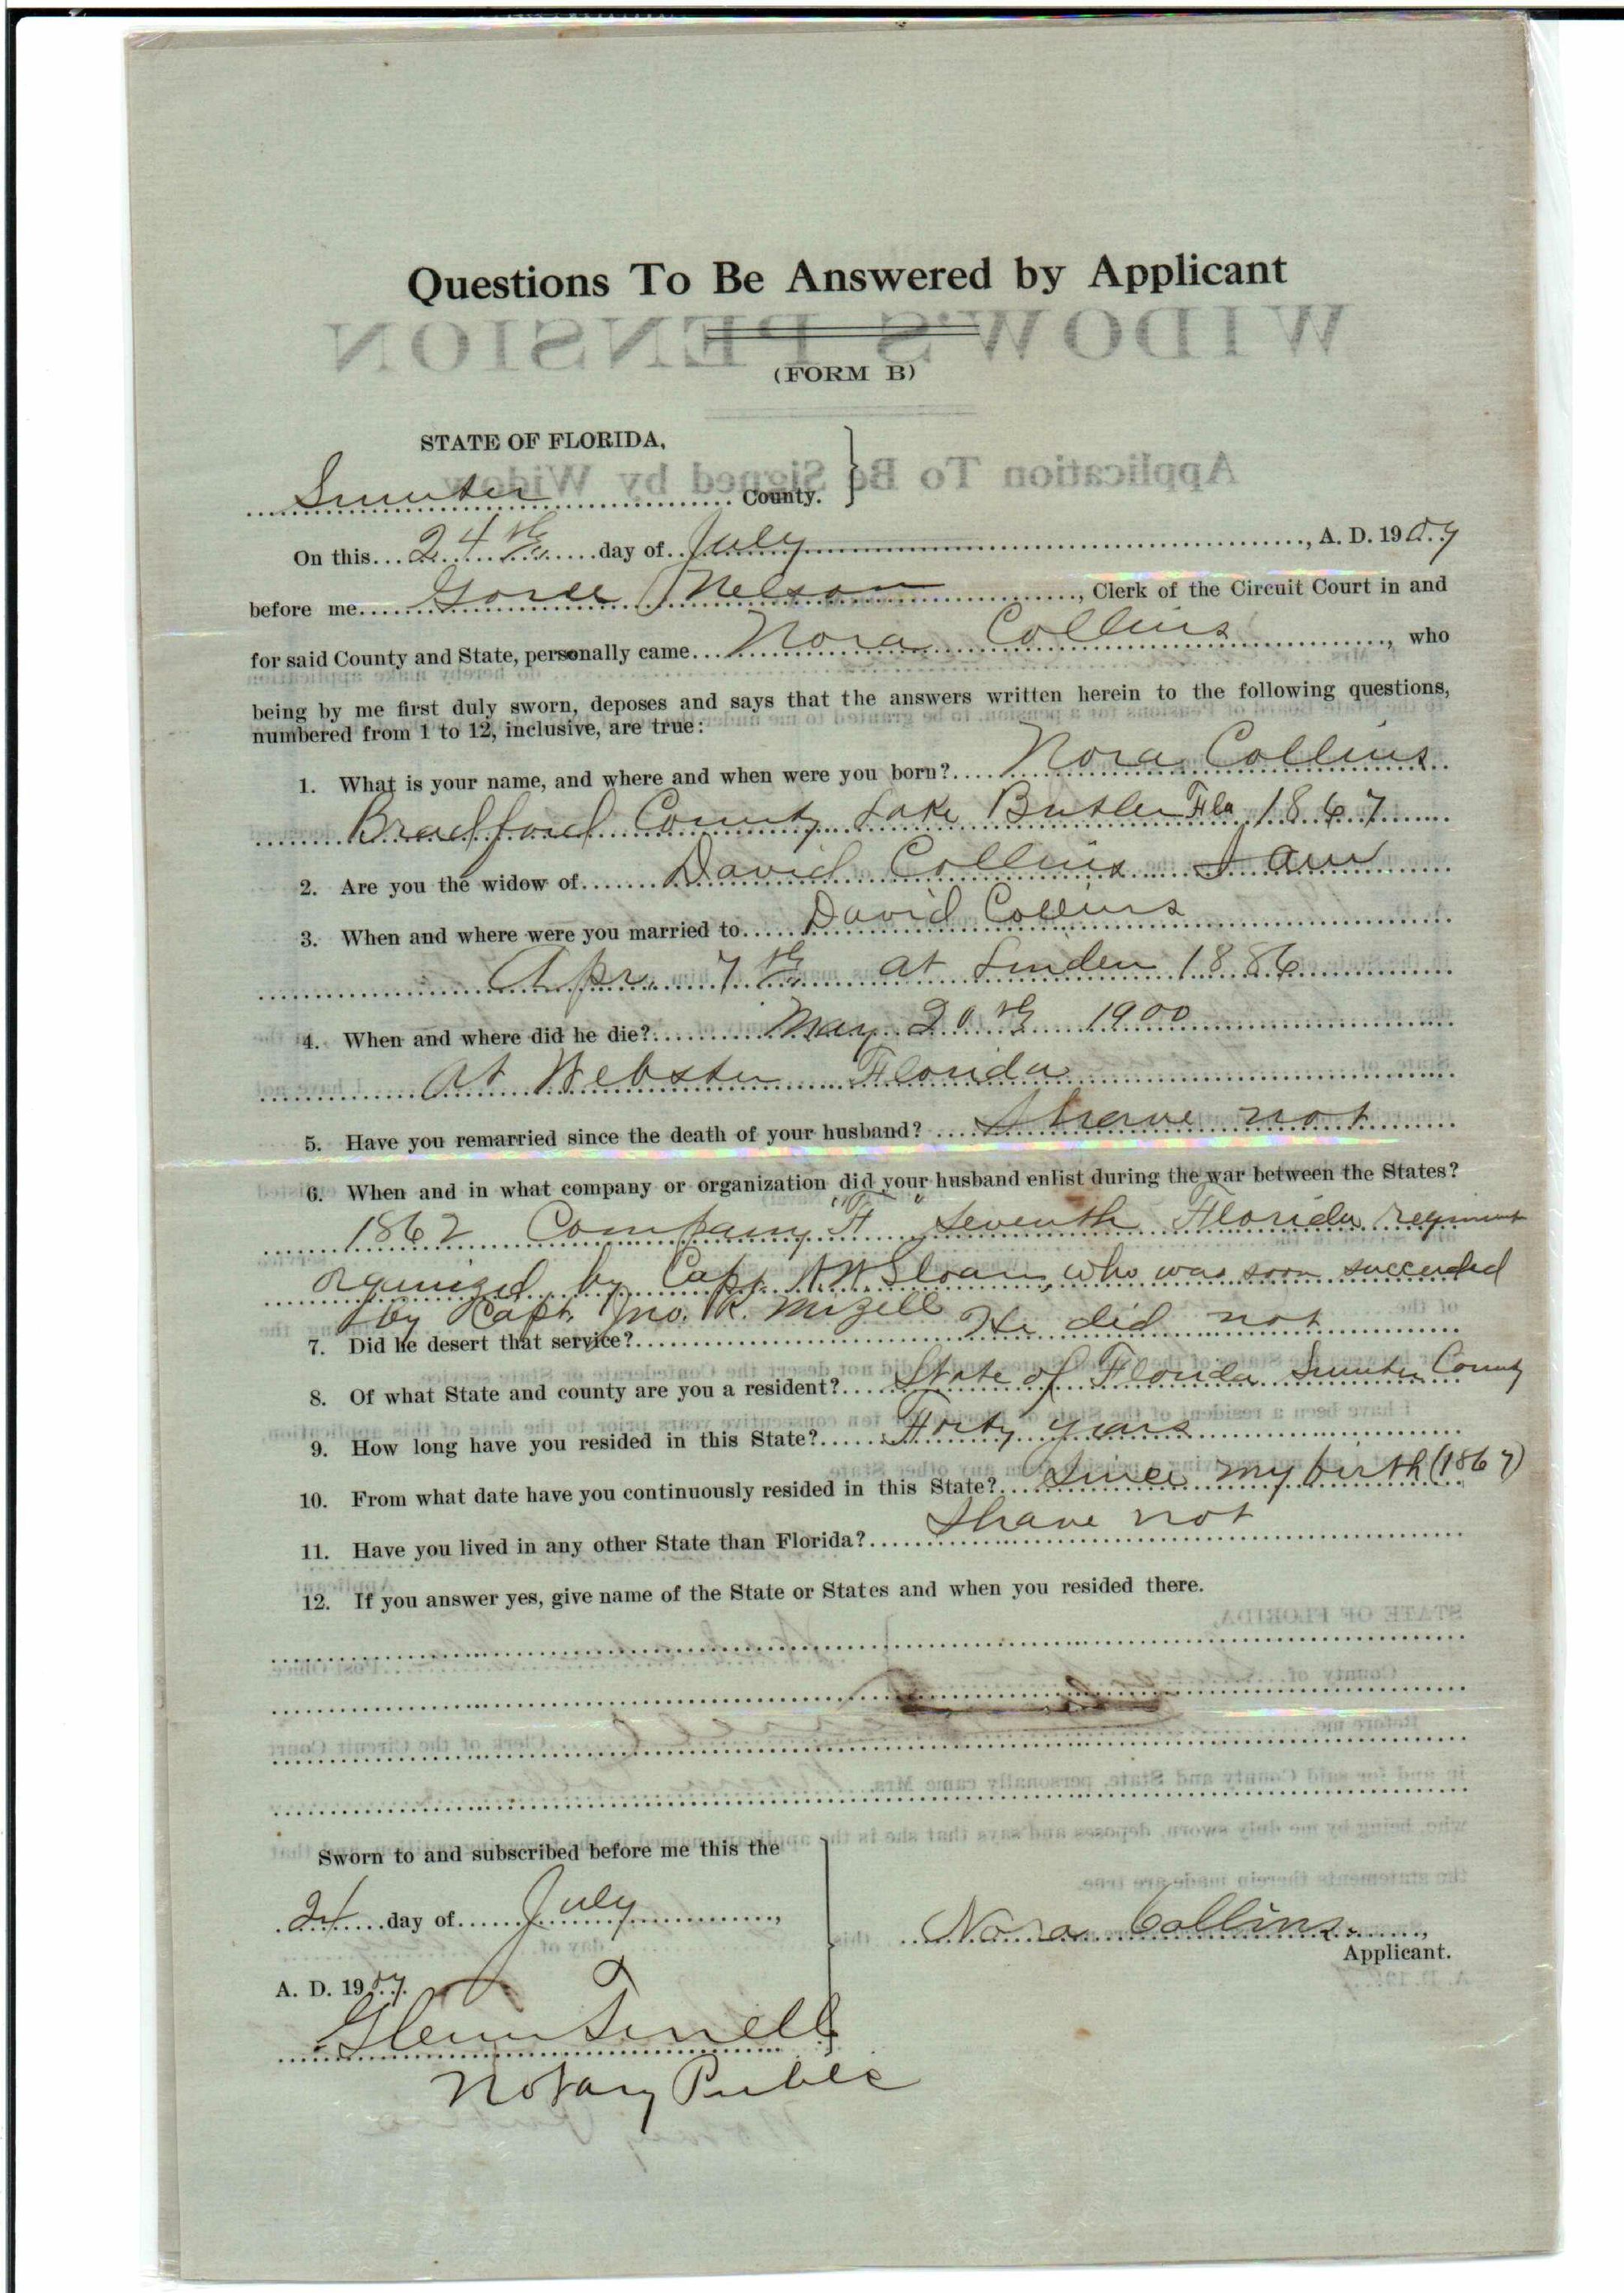 Questions To Be Answered by Applicant
WIDOW'S PENSION
(FORM B)
STATE OF FLORIDA,
Application To Be Signed by Widow
Sumter County.
On this 24th day of July, A. D. 1907
before me Nelson, Clerk of the Circuit Court in and
for said County and State, personally came Nora Collins, who
being by me first duly sworn, deposes and says that the answers written herein to the following questions,
numbered from 1 to 12, inclusive, are true:
1. What is your name, and where and when were you born? Nora Collins
Bradford County Lake Butler Fla 1867
2. Are you the widow of David Collins I am
3. When and where were you married to David Collins
Apr. 7th at Linden 1886
4. When and where did he die? May 20th 1900
at Webster Florida
5. Have you remarried since the death of your husband? I have not
6. When and in what company or organization did your husband enlist during the war between the States?
1862 Company "F" Seventh Florida regiment
organized by Capt. Sloan, who was soon succeeded
by Capt. Jno. R. Mizell
7. Did he desert that service? He did not
8. Of what State and county are you a resident? State of Florida Sumter County
9. How long have you resided in this State? Forty years
10. From what date have you continuously resided in this State? Since my birth (1867)
11. Have you lived in any other State than Florida? I have not
12. If you answer yes, give name of the State or States and when you resided there.
Sworn to and subscribed before me this the
24 day of July,
A. D. 1907.
Nora Collins,
Applicant.
Glenn Terrell
Notary Public